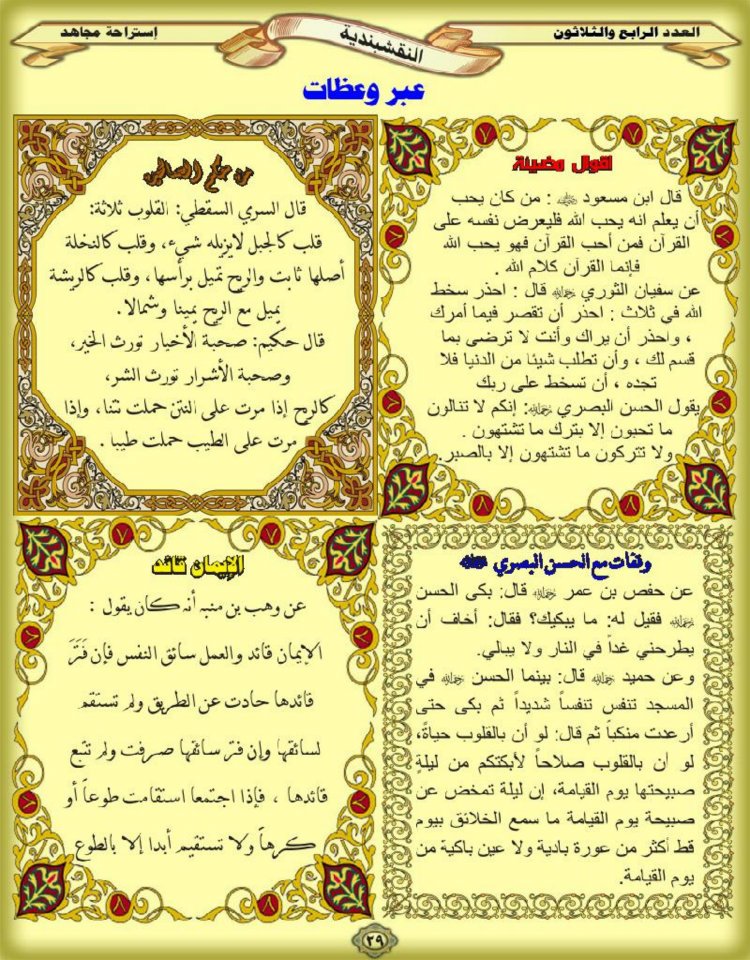 العدد الرابع والثلاثون
النقشبندية
إستراحة مجاهد
عبر وعظات
اقوال مضيئة
قال ابن مسعود ﷺ : من كان يحب
أن يعلم انه يحب الله فليعرض نفسه على
القرآن فمن أحب القرآن فهو يحب الله
فإنما القرآن كلام الله .
عن سفيان الثوري رحمه الله قال : احذر سخط
الله في ثلاث : احذر أن تقصر فيما أمرك
، واحذر أن يراك وأنت لا ترضى بما
قسم لك ، وأن تطلب شيئا من الدنيا فلا
تجده ، أن تسخط على ربك
يقول الحسن البصري رحمه الله : إنكم لا تنالون
ما تحبون إلا بترك ما تشتهون .
ولا تتركون ما تشتهون إلا بالصبر.
من حكم الصالحين
قال السري السقطي: القلوب ثلاثة:
قلب كالجبل لايزيله شيء، وقلب كالنخلة
أصلها ثابت والريح تميل برأسها، وقلب كالريشة
يميل مع الريح يمينا وشمالا.
قال حكيم: صحبة الأخبار تورث الخير،
وصحبة الأشرار تورث الشر،
كالريح إذا مرت على النتن حملت نتنا، وإذا
مرت على الطيب حملت طيبا .
وقفات مع الحسن البصري
عن حفص بن عمر رحمه الله قال: بكى الحسن
رحمه الله فقيل له: ما يبكيك؟ فقال: أخاف أن
يطرحني غداً في النار ولا يبالي.
وعن حميد رحمه الله قال: بينما الحسن رحمه الله في
المسجد تنفس تنفساً شديداً ثم بكى حتى
أرعدت منكباً ثم قال: لو أن بالقلوب حياةً،
لو أن بالقلوب صلاحاً لأبكتكم من ليلةٍ
صبيحتها يوم القيامة، إن ليلة تمخض عن
صبيحة يوم القيامة ما سمع الخلائق بيوم
قط أكثر من عورة بادية ولا عين باكية من
يوم القيامة.
الإيمان قائد
عن وهب بن منبه أنه كان يقول :
الإيمان قائد والعمل سائق النفس فإن فَتَرَ
قائدها حادت عن الطريق ولم تستقم
لسائقها وإن فتر سائقها صرفت ولم تتبع
قائدها ، فإذا اجتمعا استقامت طوعاً أو
كرهاً ولا تستقيم أبدا إلا بالطوع
٢٩